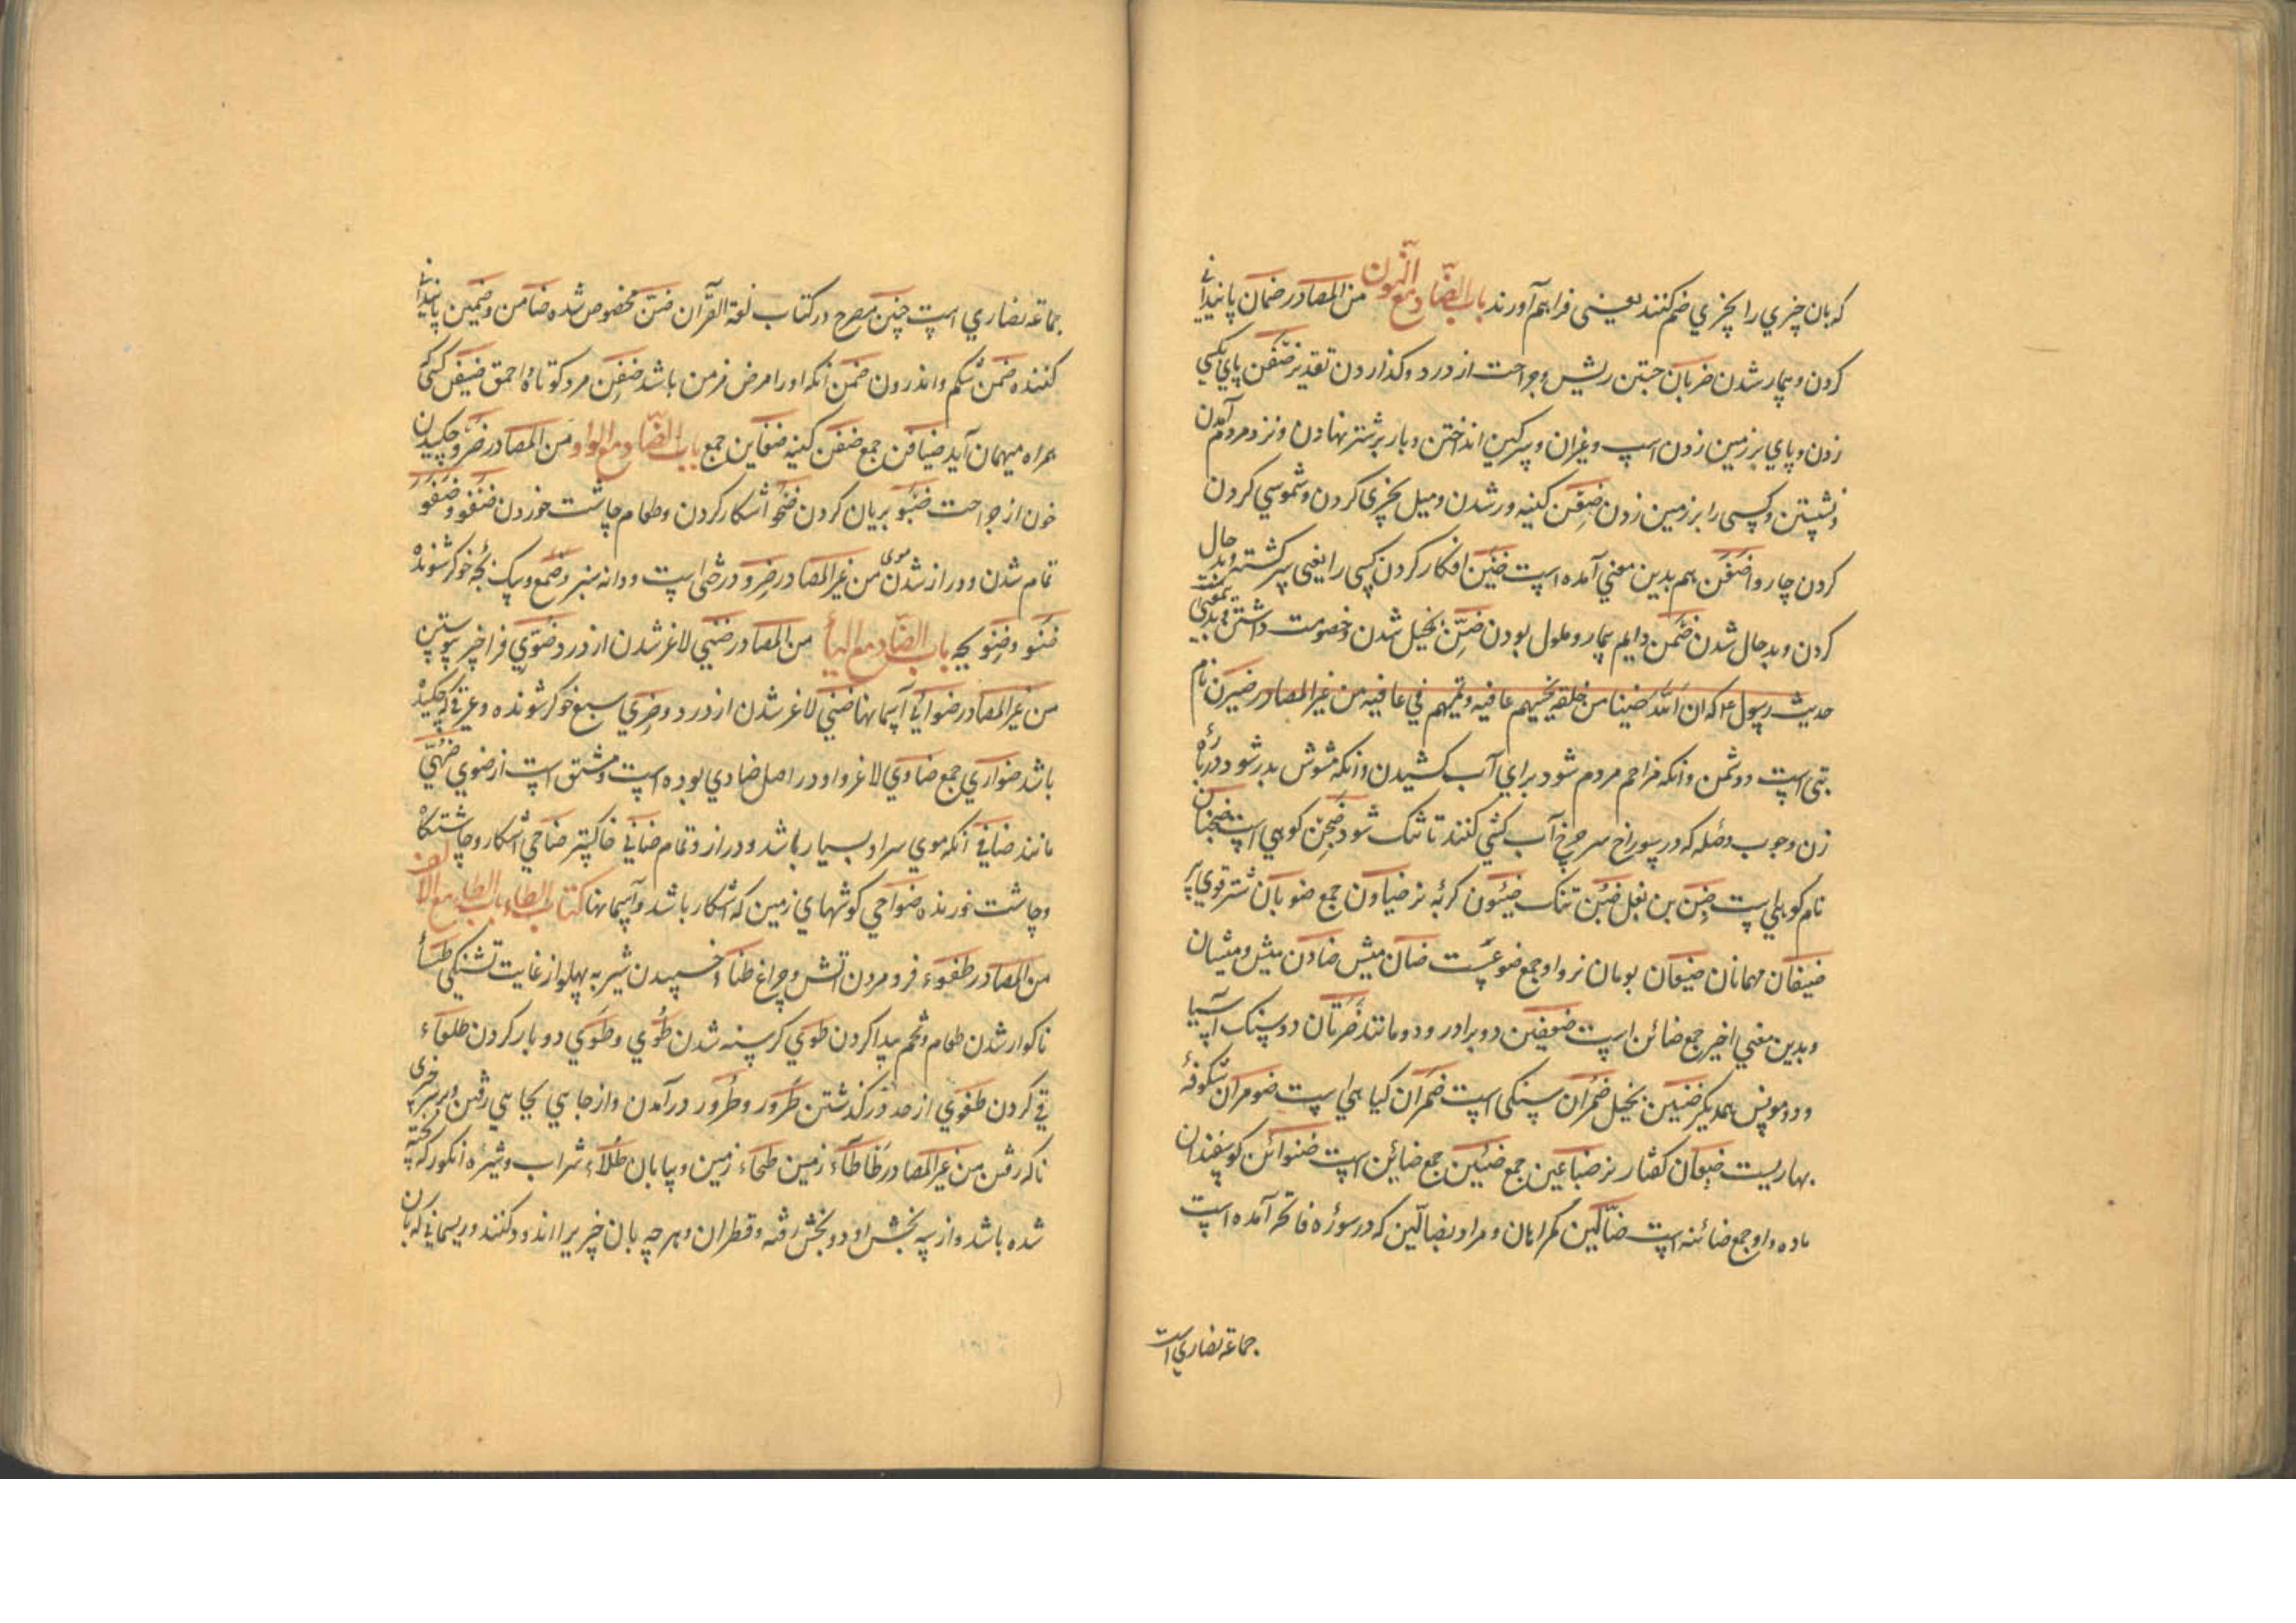 که بان چیزي را بچیزي ضم کنند یعنی فراهم آورند باب الضّاد مع النّون من المصادر ضمان پایندانی
کردن و بیمار شدن ضربان جستن ریش و جراحت از درد و کذاردن تقدیر ضفن پاي بکسی
زدن و پاي بر زمین زدن اسپ و غیران و سرکین انداختن و بار بر شتر نهادن و نزد مردم آمدن
و نشستن و کسی را بر زمین زدن ضِغن کینه ور شدن و میل بچیزی کردن و شموسي کردن
کردن چاروا ضَغَن هم بدین معني آمده است افکار کردن کسی را یعنی سرکشته و بد حال
کردن و بد حال شدن ضمن دایم بیمار و ملول بودن ضِنّ بخیل شدن و خصومت داشتن
حدیث رسول ۴ که ان لله ضنینا من خلقه یحییهم عافیه و یمیتهم في عافیه من غیر المصادر ضیزن نام
بتی است و دشمن و انکه مزاحم مردم شود براي آب کشیدن و انکه شوش پدر شود درباره
زن و چوب وصله که در سوراخ سر چرخ آب کشي کنند تا تنک شود ضجن کوهي است ضجنان
نام کوهی است ضبن بن بغل ضَبِن تنک ضیئون کربهٔ نر ضیاون جمع ضوبان شتر قوی
ضیفان مهمانان ضیعان بومان نر و او جمع ضوع است ضان میش ضادن میش و میشان
و بدین معني اخیر جمع ضائن است ضعفین دو برادر و دو مانند ضرتان دو سنک آسیا
و دو مونس همدیکر ضنین بخیل ضمران سنکی است ضمران کیاهي است ضومران شکوفهٔ
بهاریست ضبعان کفتار نر ضباعین جمع ضئین جمع ضائن است ضوائن کوسفندان
ماده و او جمع ضائنه است ضالّین کمراهان و مراد بضالّین که در سورهٔ فاتحه آمده است
جماعه نصاري است
جماعه نصاري است چنین مصرح در کتاب لغة القرآن ضمن مخصوص شده ضامن و ضمین پایندانی
کننده ضمن شکم و اندرون ضَمِن انکه او را مرض مزمن باشد ضفن مرد کوتاه و احمق ضیفن کسی که
همراه میهمان آید ضیافن جمع ضغن کینه ضغاین جمع باب الضّاد مع الواو من المصادر ضَرو چکیدن
خون از جراحت ضبو بریان کردن ضحو آشکار کردن و طعام چاشت خوردن ضفو و ضفو
تمام شدن و دراز شدن موی من غیر المصادر ضِرو درختی است و دانه سبز و صمغ و سک بچه خوکر شونده
ضنو و ضِنو بچه باب الضّاد مع الیأ من المصادر ضنی لاغر شدن از درد ضوي فرا چیز پیوستن
من غیر المصادر ضواحي آسمانها ضني لاغر شدن از درد و ضري سبع خوکر شونده و عرقی که چکیده
باشد ضواري جمع ضاوي لاغر و او در اصل ضادي بوده است و مشتق است از ضوي ضهي
مانند ضافي انکه موي سر او بسیار باشد و دراز و تمام ضابي خاکستر ضاحي آشکار و چاشتکاه
و چاشت خورنده ضواحي کوشهاي زمین که آشکار باشد و آسمانها کتاب الطاء باب الطاء مع الالف
من المصادر طفوء فرو مردن آتش و چراغ طناء و خسپیدن شیر به پهلو از غایت تشنکي طسأ
ناکوار شدن طعام و تخم پیدا کردن طوَي کرسنه شدن طُوي و طَوَي دو بار کردن طلعاء
قي کردن طغوي از حد درکذشتن طرور و طُرور درآمدن و از جاهي بجاهي رفتن و بر سر چیزی
ناکه رفتن من غیر المصادر طاطاء زمین طحاء زمین و بیابان طلاء شراب و شیرهٔ انکور که پخته
شده باشد و از سه بخش او دو بخش رفته و قطران و هر چه بان چیزیرا اندود کنند و ریسمانی که بان